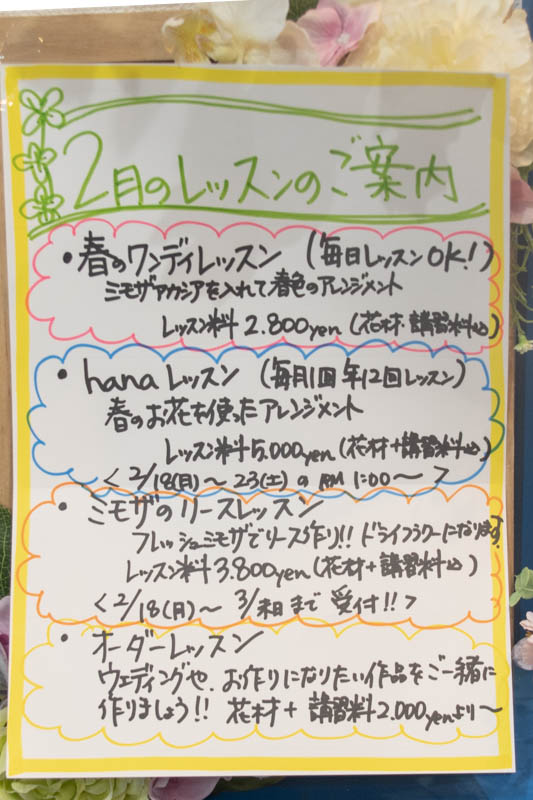 2月のレッスンのご案内
・春のワンディレッスン (毎日レッスンOK!)
ミモザアカシアを入れて春色のアレンジメント
レッスン料 2.800yen (花材・講習料込)
・hanaレッスン (毎月1回 年12回レッスン)
春のお花を使ったアレンジメント
レッスン料 5,000yen (花材+講習料込)
<2/18(月)〜23(土)の PM 1:00〜>
・ミモザのリースレッスン
フレッシュミモザでリース作り!! ドライフラワーになります。
レッスン料 3.800yen (花材+講習料込)
<2/18(月)〜 3/末日まで 受付!!>
・オーダーレッスン
ウェディングや、お作りになりたい作品をご一緒に
作りましょう!! 花材+講習料2.000yenより〜